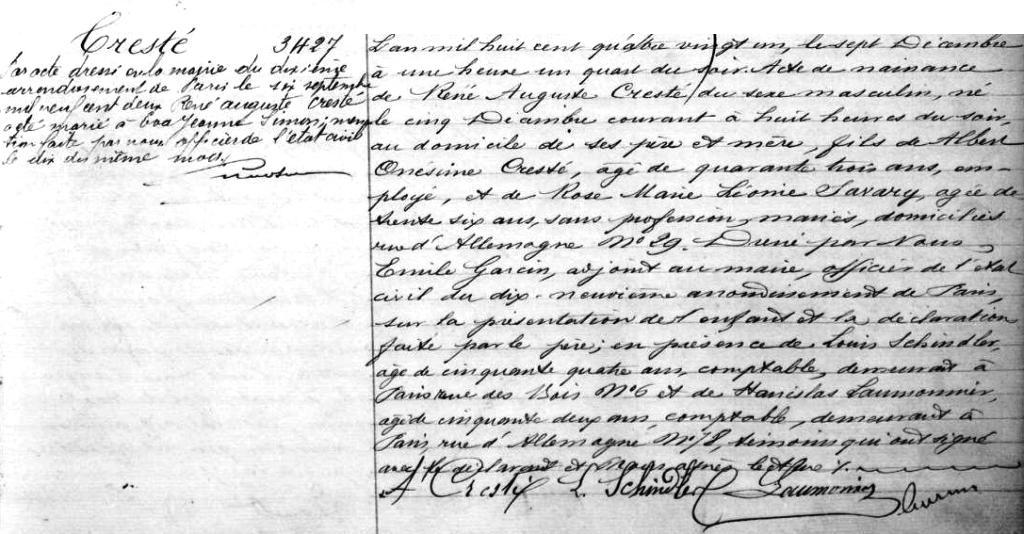 Cresté 3427
Par acte dressé à la mairie du dixième
arrondissement de Paris le six septembre
mil neuf cent deux René Auguste Cresté
a été marié à Eva Jeanne Simon; men-
tion faite par nous officier de l'état civil
le dix du même mois.
L'an mil huit cent quatre vingt un, le sept Décembre
à une heure un quart du soir. Acte de naissance
de René Auguste Cresté du sexe masculin, né
le cinq Décembre courant à huit heures du soir,
au domicile de ses père et mère, fils de Albert
Onésime Cresté, âgé de quarante trois ans, em-
ployé, et de Rose Marie Léonie Savary, agée de
trente six ans, sans profession, mariés, domiciliés
rue d'Allemagne No 29. Dressé par Nous,
Emile Garcin, adjoint au maire, officier de l'état
civil du dix-neuvième arrondissement de Paris,
sur la présentation de l'enfant et la déclaration
faite par le père; en présence de Louis Schindler,
agé de cinquante quatre ans, comptable, demeurant à
Paris rue des Bois No 6 et de Stanislas Laumonnier,
agé de cinquante deux ans, comptable, demeurant à
Paris, rue d'Allemagne, témoins qui ont signé
avec le déclarant et Nous après lecture
A Cresté L. Schindler Laumonier